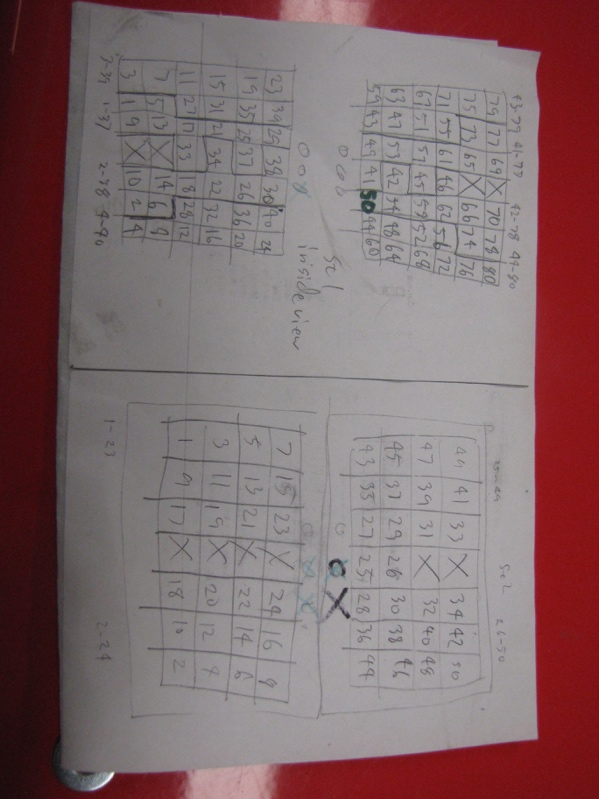 43-79 41-77 42-78 44-80
79 77 69 X 70 78 80
75 73 65 X 66 74 76
71 55 61 46 62 56 72
67 51 57 45 58 52 68
63 47 53 42 54 48 64
59 43 49 41 50 44 60
521
inside view
23 39 29 38 30 40 24
19 35 25 37 26 36 20
15 31 21 34 22 32 16
11 27 17 33 18 28 12
7 5 13 X 14 6 8
3 1 9 X 10 2 4
3-39 1-37 2-38 4-40
26-50
49 41 33 X 34 42 50
47 39 31 X 32 40 48
45 37 29 26 30 38 46
43 35 27 25 28 36 44
X
7 15 23 X 24 16 8
5 13 21 X 22 14 6
3 11 19 X 20 12
1 9 17 X 18 10 2
1-23 2-24